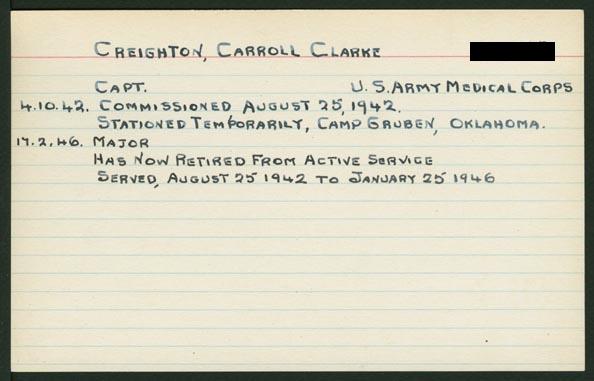 CREIGHTON, CARROLL CLARKE
CAPT. U.S. ARMY MEDICAL CORPS
4.10.42. COMMISSIONED AUGUST 25, 1942.
STATIONED TEMPORARILY, CAMP GRUBEN, OKLAHOMA.
17.2.46. MAJOR
HAS NOW RETIRED FROM ACTIVE SERVICE
SERVED, AUGUST 25 1942 TO JANUARY 25 1946